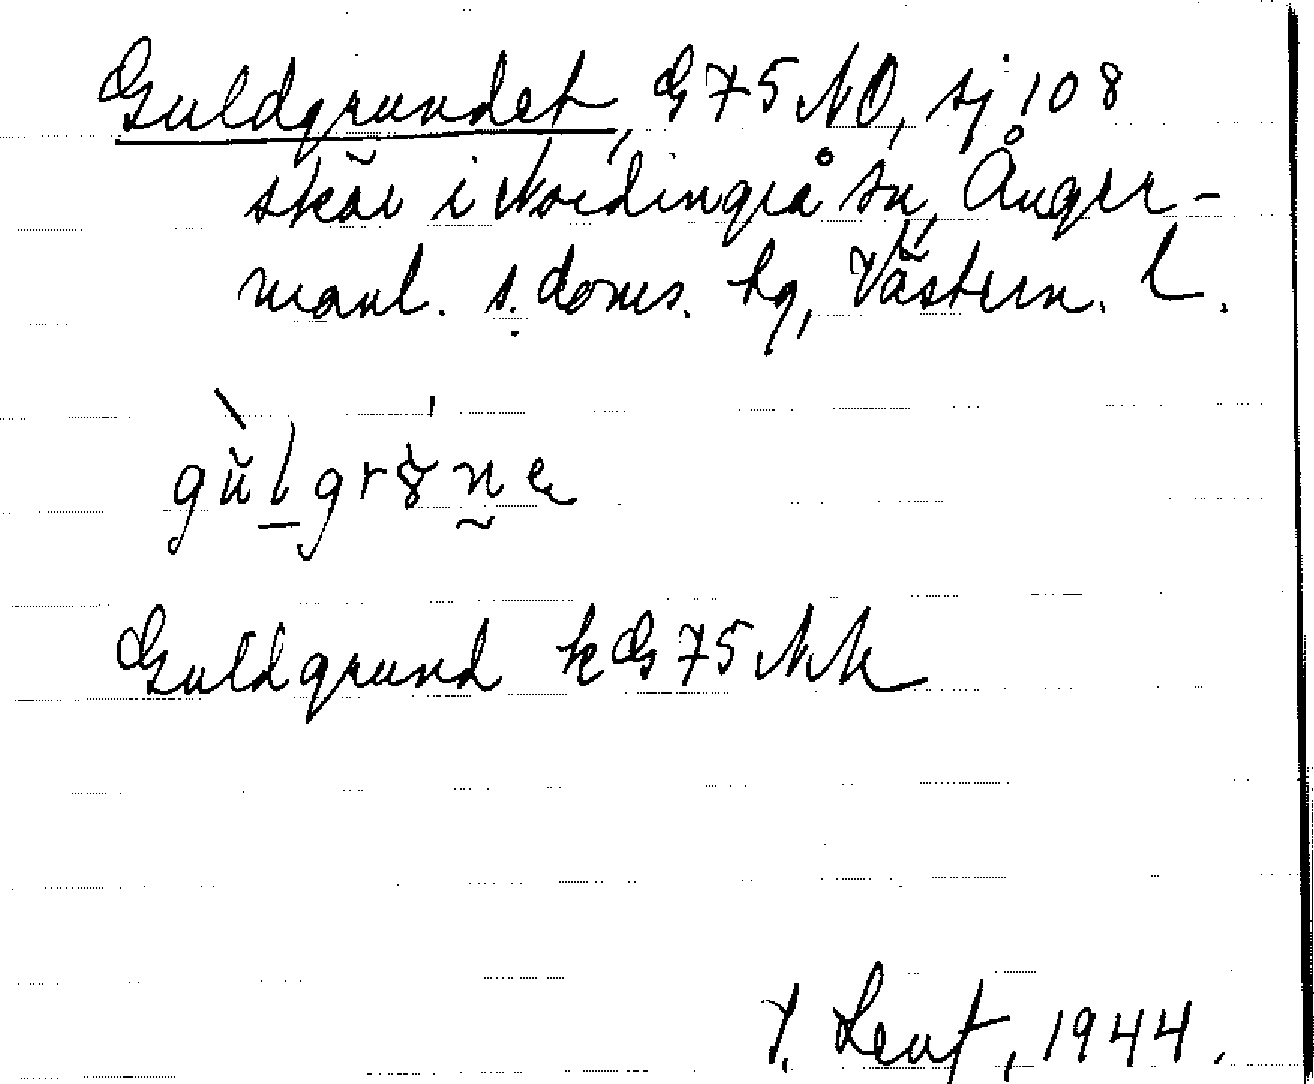 Guldgrundet, G 75 NO, sj 108
skär i Nordingrå sn, Ånger-
manl. s. doms. hg, Västern. l.
gùlgrune
Guldgrund kG 75 NN
1944.